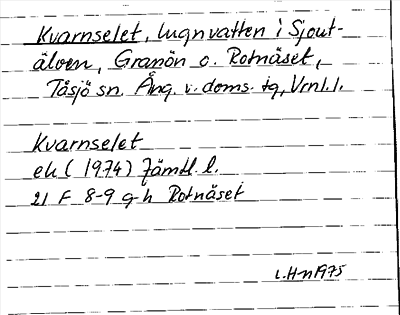 Kvarnselet, lugnvatten i Sjout-
älven, Granön o. Rotnäset,
Tåsjö sn. Ång. v. doms. tg, Vrnl. l.
Kvarnselet
ek (1974) Jämtl. l.
21 F 8-9 g-h Rotnäset
L.H-n 1975